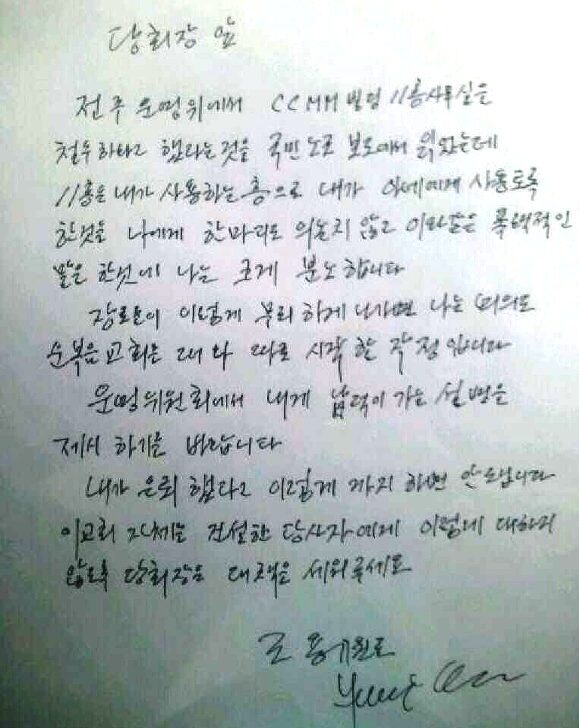 당회장 앞
전주 운영위에서 CCMM빌딩 11층사무실을
철수하라고 했다는것을 국민노조 보도에서 읽었는데
11층은 내가 사용하는 층으로 내가 아세에게 사용토록
한것을 나에게 한마디도 의논치 않고 이와같은 폭력적인
말을 한것에 나는 크게 분노합니다
장로들이 이렇게 무리하게 나가면 나는 여의도
순복음교회를 떠나 따로 시작할 작정입니다
운영위원회에서 내게 납득이 가는 설명을
제시하기를 바랍니다
내가 은퇴했다고 이렇게까지 하면 안됩니다
이교회 자체를 건설한 당사자에게 이렇게 대하지
않도록 당회장은 대책을 세워주세요
조용기원로